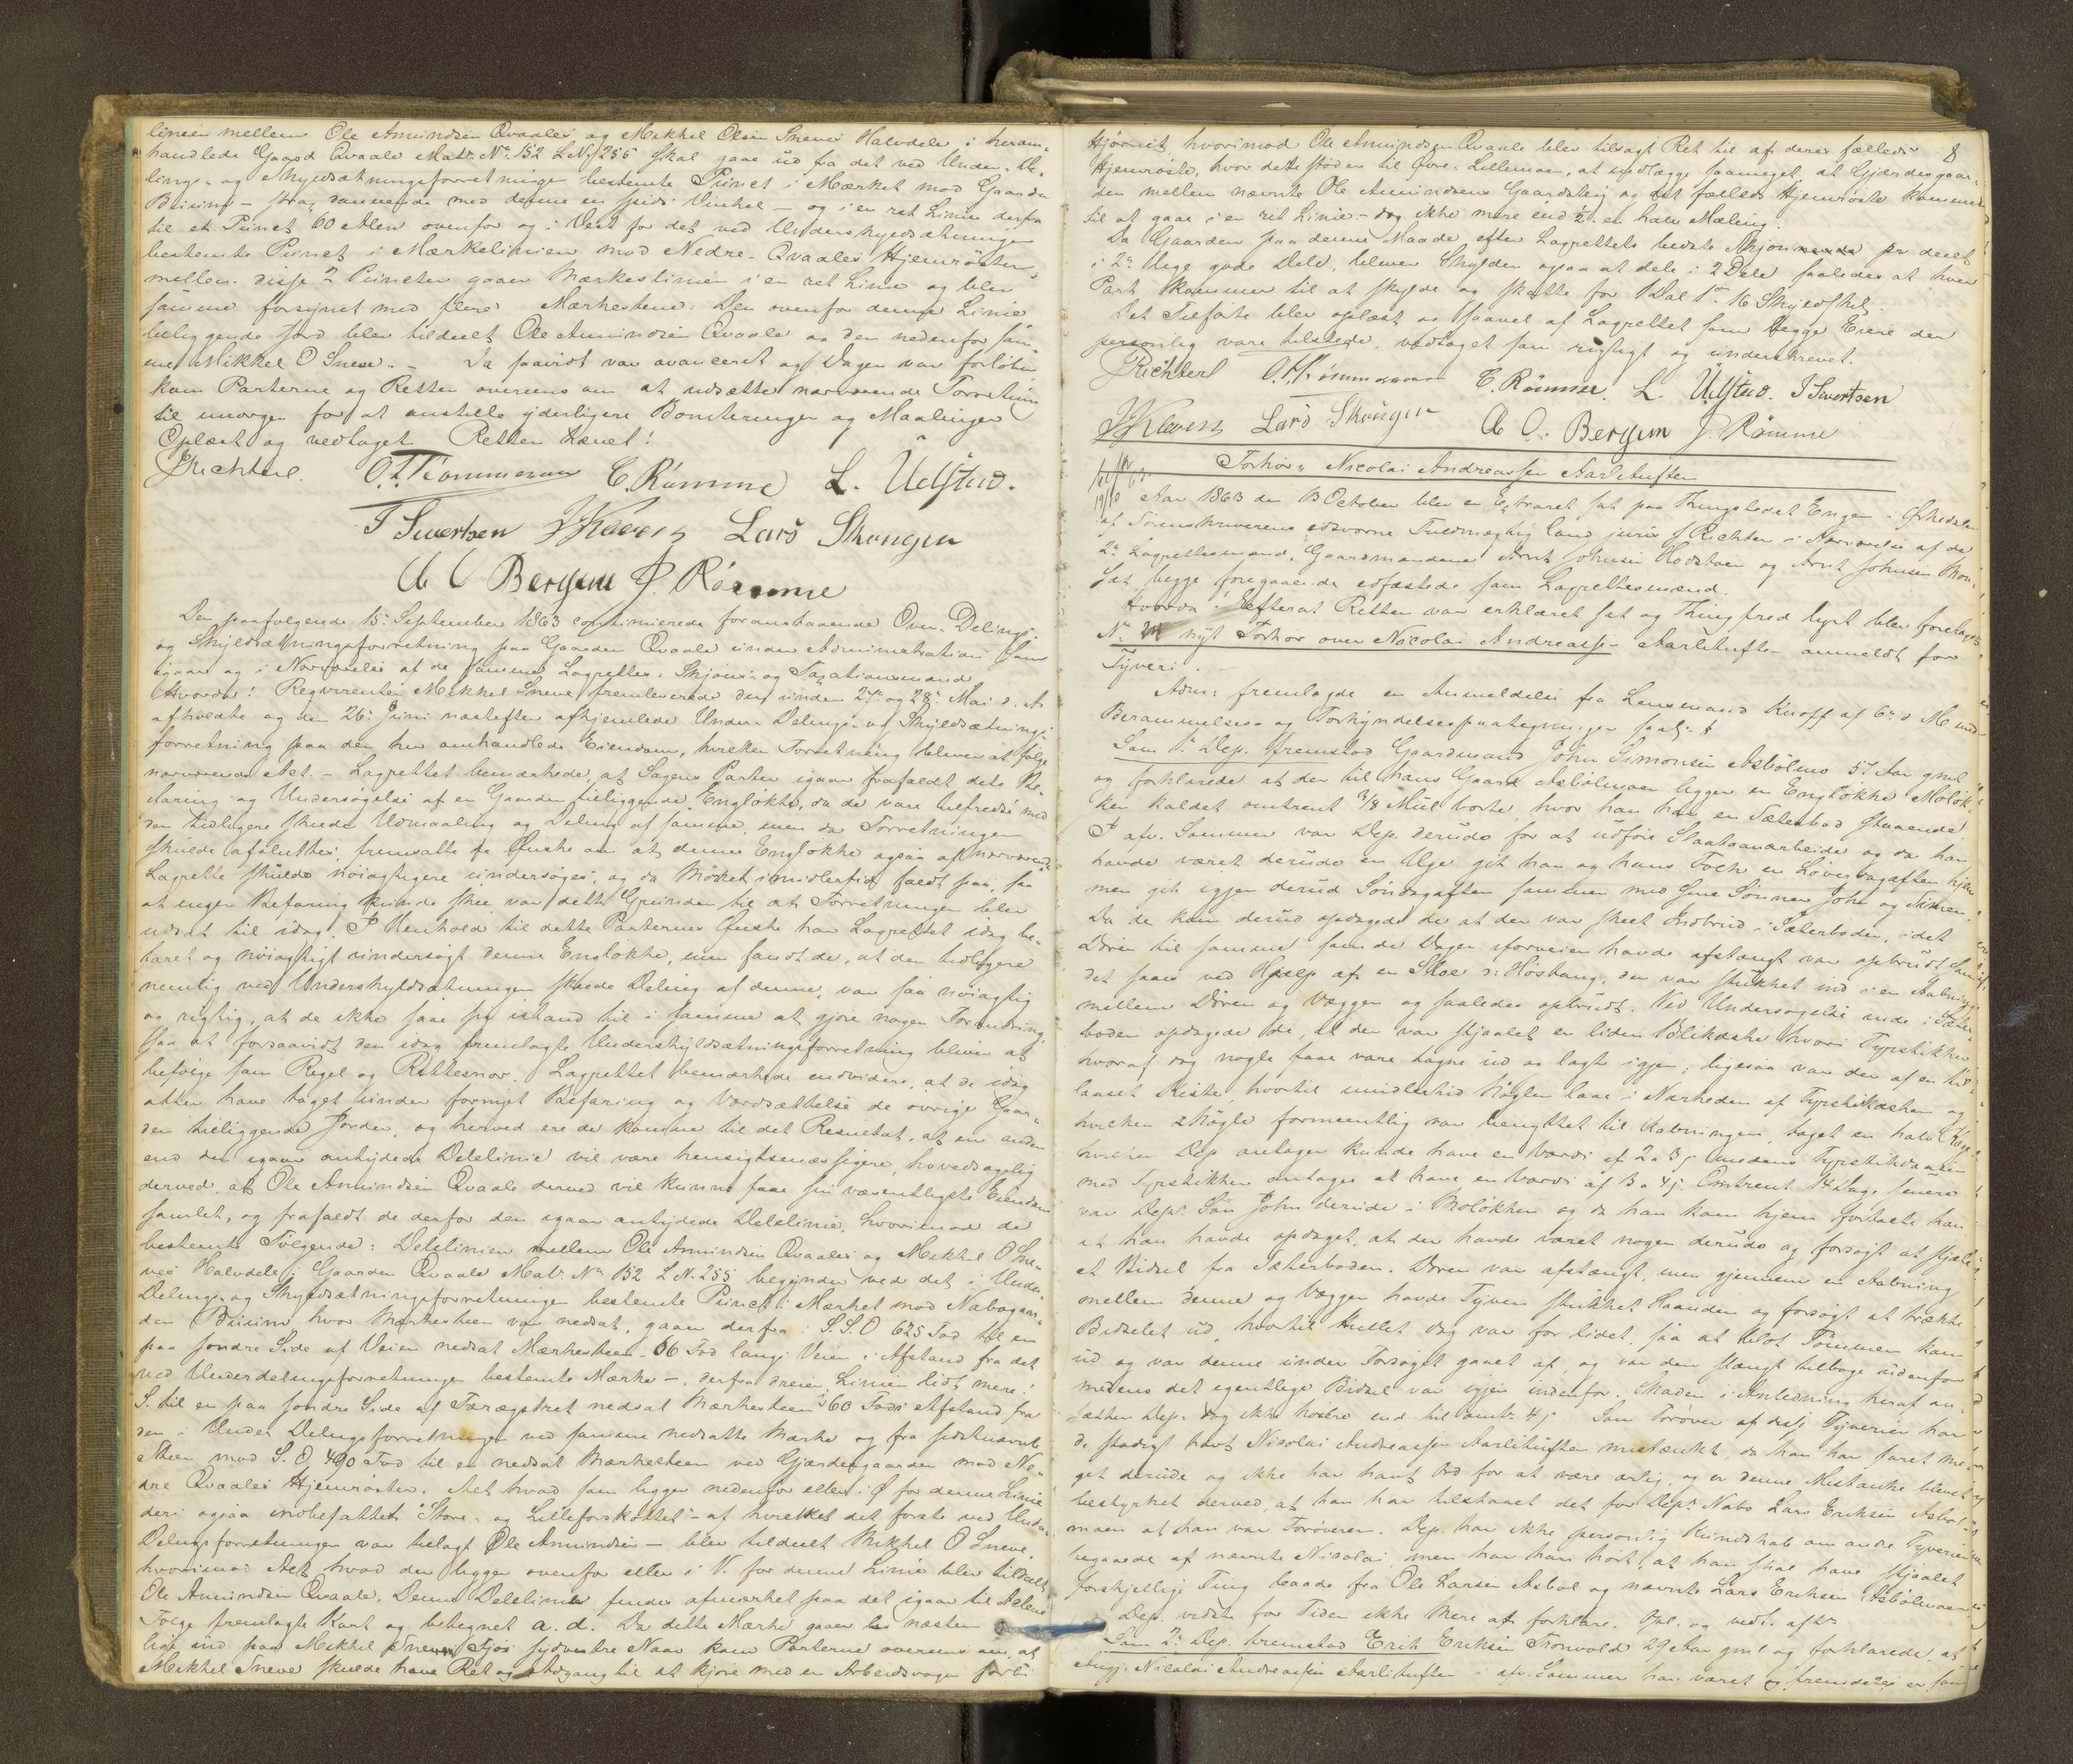 linien mellem Ole Amundsen Qvaales og Mikkel Olsen Sneves Halvdele i heromhandlede
handlede Gaard Qvaale Matr. No. 152 L.No. 255 skal gaae ud fra det ved Under-De-
lings- og Skyldsætningsforretningen bestemte Punct i Mærket mod Gaarden
til et Punct 60 Alen ovenfor og i Vest for det ved Underskyldsætningen
bestemte Punct i Mærkelinien mod Nedre-Qvaales Hjemrøster,
mellem disse 2 Puncter gaaer Mærkeslinien i en ret Linie og blev
samme forsynet med flere Mærkestene. Den ovenfor denne Linie
beliggende Jord blev tildeelt Ole Amundsen Qvaale og den nedenfor sam-
me Mikkel O Sneve. – Da saavidt var avanceret og Dagen var forløben
kom Parterne og Retten overeens om at udsætte nærværende Forretning
til imorgen for at anstille yderligere Boniteringer og Maalinger
Oplæst og vedtaget. Retten hævet!
J Richter. O. T. Trommesen C. Römme L. Uelstad.
T Sivertsen J Kleven Lars Skougen
A O Bergum J. Römme
Den paafølgende 15. September 1863 continuerede foranstaaende Over-Delings-
og Skyldsætningsforretning paa Gaarden Qvaale under Administration som
igaar og i Nærværelse af de samme Lagrettes-Skjøns- og Taxationsmænd
Hvorda! Reqvirenten Mikkel Sneve fremleverede den under 27. og 28. Mai d. A.
afholdte og den 26. Juni næstefter afhjemlede Under-Delings- og Skyldsætnings-
forretning paa den her omhandlede Eiendom, hvilken Forretning bliver at følge
nærværende Act. – Lagrettet bemærkede, at Sagens Parter igaar frafaldt dets Be-
faring og Undersøgelse af en Gaarden tilliggende Engløkke, da de vare tilfredse med
den tidligere skeede Udmaaling og Deling af samme, men da Forretningen
skulde afsluttes, fremsatte de Ønske om at denne Engløkke ogsaa af nærværende
Lagrette skulde nøiagtigere undersøges, og da Mørket imidlertid faldt paa, saa
at ingen Befaring kunde skee, var dette Grunden til at Forretningen blev
udsat til idag. I Henhold til dette Parternes Ønske har Lagrettet idag be-
faret og nøiagtigt undersøgt denne Engløkke, men fandt de, at den tidligere
nemlig ved Underskyldsætningen skeede Deling af denne, var saa nøiagtig
og rigtig, at de ikke saae sig istand til i samme at gjøre nogen Forandring
saa at forsaavidt den idag fremlagte Underskyldsætningsforretning bliver at
befølge som Regel og Rettesnor. Lagrettet bemærkede endvidere, at de idag
atter have taget under fornyet Befaring og Værdsættelse de øvrige Gaar-
den tilliggende Jorder, og herved ere de komne til det Resultat, at en anden
end den igaar antydede Delelinie vil være hensigtsmæssigere, hovedsagelig
derved, at Ole Amundsen Qvaale derved vil kunne faae sin væsentligste Eiendom
samlet, og frafaldt de derfor den igaar antydede Delelinie, hvorimod de
bestemte Følgende: Delelinien mellem Ole Amundsen Qvaales og Mikkel O Sne-
ves Halvdele i Gaarden Qvaale Matr No 152 L.N. 255 begynder ved det i Under-
Delings- og Skyldsætningsforretningen bestemte Punct i Mærket mod Nabogaar-
den hvor Mærkesteen var nedsat, gaaer derfra i S.S.O 625 Fod til en
paa søndre Side af Veien nedsat Mærkesteen – 66 Fod langs Veien i Afstand fra det
ved Underdelingsforretningen bestemte Mærke –, derfra dreier Linien lidt mere i
S. til en paa søndre Side af nedsat Mærkesteen i 60 Fods Afstand fra
den i Under Delingsforretningen ved samme nedsatte Mærke og fra sidstnævnte
Steen mod S. O, 490 Fod til en nedsat Mærkesteen ved Gjærdesgaarden mod Ne-
dre Qvaales Hjemrøster. Alt hvad som ligger nedenfor eller i Ø for denne Linie
deri ogsaa indbefattet Store- og Lilleforskottet – af hvilket det første ved Under-
Delingsforretningen var tillagt Ole Amundsen – blev tildeelt Mikkel O Sneve,
hvorimod Alt hvad der ligger ovenfor eller i V. for denne Linie blev tildeelt
Ole Amundsen Qvaale. Denne Delelinie findes afmærket paa det igaar til Actens
Følge fremlagte Kart og betegnet a. d. Da dette Mærke gaaer næsten
lige ind paa Mikkel Sneves kom Parterne overeens om, at
Mikkel Sneve skulde have Ret og Adgang til at kjøre med en Arbeidsvogn forbi
8
Hjørnet hvorimod Ole Amundsen Qvaale blev tilsagt Ret til af deres fælleds
Hjemrøste, hvor dette støder til Lillemoen, at indlægge saameget, at Gjærdesgaar-
den mellem nævnte Ole Amundsens Gaardsteig og det fælleds Hjemrøste kommer
til at gaae i en ret Linie – dog ikke mere end ½ en halv Mæling.
Da Gaarden paa denne Maade efter Lagrettets bedste Skjønnende er deelt
i 2de lige gode Dele, bliver Skylden ogsaa at dele i 2 Dele saaledes at hver
Part kommer til at skylde og skatte for 1 Dal 1 16 Skylskil.
Det Tilførte blev oplæst og saavel af Lagrettet som begge Eiere der
personlig vare tilstede, vedtaget som rigtigt og underskrevet.
J Richter O. T. Trommesen C. Römme. L. Uelstad. T Sivertsen
J Kleven Lars Skougen A O. Bergum J. Römme
Forhør: Nicolai Andreassen Aarlituften
Aar 1863 den 13 October blev en Extraret sat paa Thingstedet Enge i Ørkedalen
af Sorenskriverens edsvorne Fuldmægtig Cand juris J Richter i Nærværelse af de
2de Lagrettesmænd, Gaardmændene Arnt Johnsen Hodstoen og Arnt Johnsen
begge foregaaende edfæstede som Lagrettesmænd.
Hvorda! Efterat Retten var erklæret sat og Thingfred lyst blev foretaget
No nyt Forhør over Nicolai Andreassen Aarlituften anmeldt for
Tyveri.
Adm: fremlagde en Anmeldelse fra Lensmand Knoff af 6te d M med
Berammelses- og Forkyndelsespaategninger
Som 1ste Dep. fremstod Gaardmand John Simonsen Asbölmo 57 Aar gml
og forklarede at der til hans Gaard Asbölmoen ligger en Engløkke Moløk-
ken kaldet omtrent 3/8 Miil borte, hvor han har en Sæterbod staaende.
I afv. Sommer var Dep. derude for at udføre Slaataanarbeide og da han
havde været derude en Uge gik han og hans Folk en Løverdagaften hjem
men gik igjen derud Søndagaften sammen med sine Sønner John og Simen.
Da de kom derud opdagede de at der var skeet Indbrud i Sæterboden, idet
Døren til samme som de Dagen iforveien havde afstængt var opbrudt
det saaes ved Hjælp af en Staae o: Høstang, der var stukket ind i en Aabning
mellem Døren og Væggen og saaledes opbrudt. Ved Undersøgelse inde i Sæter-
boden opdagede de, at der var stjaalet en liden Blikdaase hvori Fyrstikker
hvoraf dog nogle faae vare tagne ud og lagte igjen; ligesaa var der af en til-
laaset Kiste, hvortil imidlertid Nøglen laae i Nærheden af Fyrstikdaasen og
hvilken Nøgle formeentlig var benyttet til Aabningen, taget en halv
hvilken Dep antager kunde have en Værdi af 2 a 3 medens Fyrstikdaasen
med Fyrstikker antages at have en Værdi af 3 a 4. Omtrent 14 Dage senere
var Dep. Søn John derude i Moløkken og da han kom hjem fortalte han
at han havde opdaget, at der havde været nogen derude og forsøgt at stjæle
et Bidsel fra Sæterboden. Døren var afstængt, men gjennem en Aabning
mellem denne og Væggen havde Tyven stukket Haanden og forsøgt at trække
Bidselet ud, hvortil Hullet dog var for lidet, saa at blot Tømmen kom
ud og var denne under Forsøget gaaet af, og var den slængt tilbage udenfor
medens det egentlige Bidsel var igjen indenfor. Skaden i Anledning heraf an-
sætter Dep. dog ikke høiere end til omtr 4. Som Forøver af disse Tyverier har
de stadigt havt Nicolai Andreassen Aarlituften mistænkt da han har faret me-
get derude og ikke har havt Ord for at være ærlig, og er denne Mistanke blevet
bestyrket derved, at han har tilstaaet det for Dep. Nabo Lars Eriksen Asböl-
moen at han var Forøveren. Dep. har ikke personlig Kundskab om andre Tyverier
begaaede af nævnte Nicolai, men har han hørt, at han skal have stjaalet
forskjellige Ting baade fra Ole Larsen Asböl og nævnte Lars Eriksen Asbölmoen
Dep. vidste for Tiden ikke mere at forklare. Opl. og vedt. aftr.
Som 2. Dep. fremstod Erik Eriksen Tronvold 29 Aar gml og forklarede, at
Nicolai Andreassen Aarlituften i afv. Sommer har været og fremdeles er som